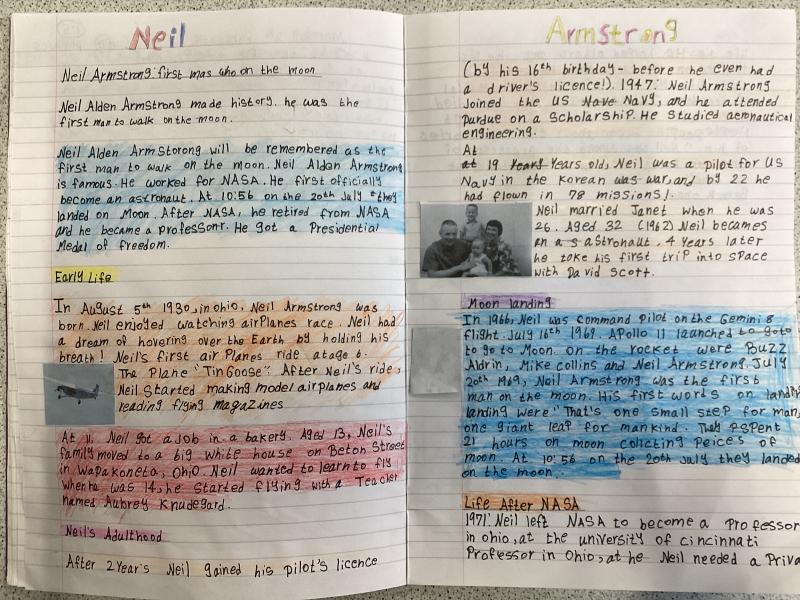 Neil
Neil Armstrong first mas who on the moon
Neil Alden Armstrong made history. he was the
first man to walk on the moon.
Neil Alden Armstorong will be remembered as the
first man to walk on the moon. Neil Alden Armstrong
is famous. He worked for NASA. He first officially
become an astronaut. At 10:56 on the 20th July they
landed on Moon. After NASA, he retired from NASA
and he became a professorr. He got a Presidential
Medal of freedom.
Early Life
In August 5th 1930, in ohio. Neil Armstrong was
born. Neil enjoyed watching airPlanes race. Neil had
a dream of hovering over the Earth by holding his
breath! Neil's first air Planes ride at age 6.
The Plane "Tin Goose". After Neil's ride,
Neil Started making model airplanes and
reading flying magazines
At 11. Neil got a Job in a bakery. Aged 13, Neil's
family moved to a big White house on Beton Street
in Wapakoneta, Ohio. Neil wanted to learn to fly
when he was 14, he Started flying with a Teacher
named Aubrey Knudegard.
Neil's Adulthood
After 2 Year's Neil gained his pilot's licence
Armstrong
(by his 16th birthday - before he even had
a driver's licence!). 1947: Neil Armstrong
Joined the US Nave Navy, and he attended
Purdue on a Scholarship. He Studied aeronautical
engineering.
At
at 19 Years Years old, Neil was a pilot for US
Navy in the Korean was war, and by 22 he
had flown in 78 missions!
Neil married Janet when he was
26. Aged 32 (1962) Neil becames
an a s aStronaut. 4 Years later
he toke his first trip into space
with David Scott.
Moon landing
In 1966, Neil was command Pilot on the Gemini 8
flight. July 16th 1969. Apollo 11 launched to goto
to go to Moon. on the rocket were Buzz
Aldrin, Mike collins and Neil Armstrong. July
20th 1969, Neil Armstrong was the first
man on the moon. His first words on
landing were "That's one small step for man,
one giant leap for mankind. They spent
21 hours on moon colicting Peices of
moon. At 10:56 on the 20th July they landed
on the moon.
Life After NASA
1971: Neil left NASA to become a Professor
in ohio, at the university of cincinnati
Professor in Ohio, at he Neil needed a Priva